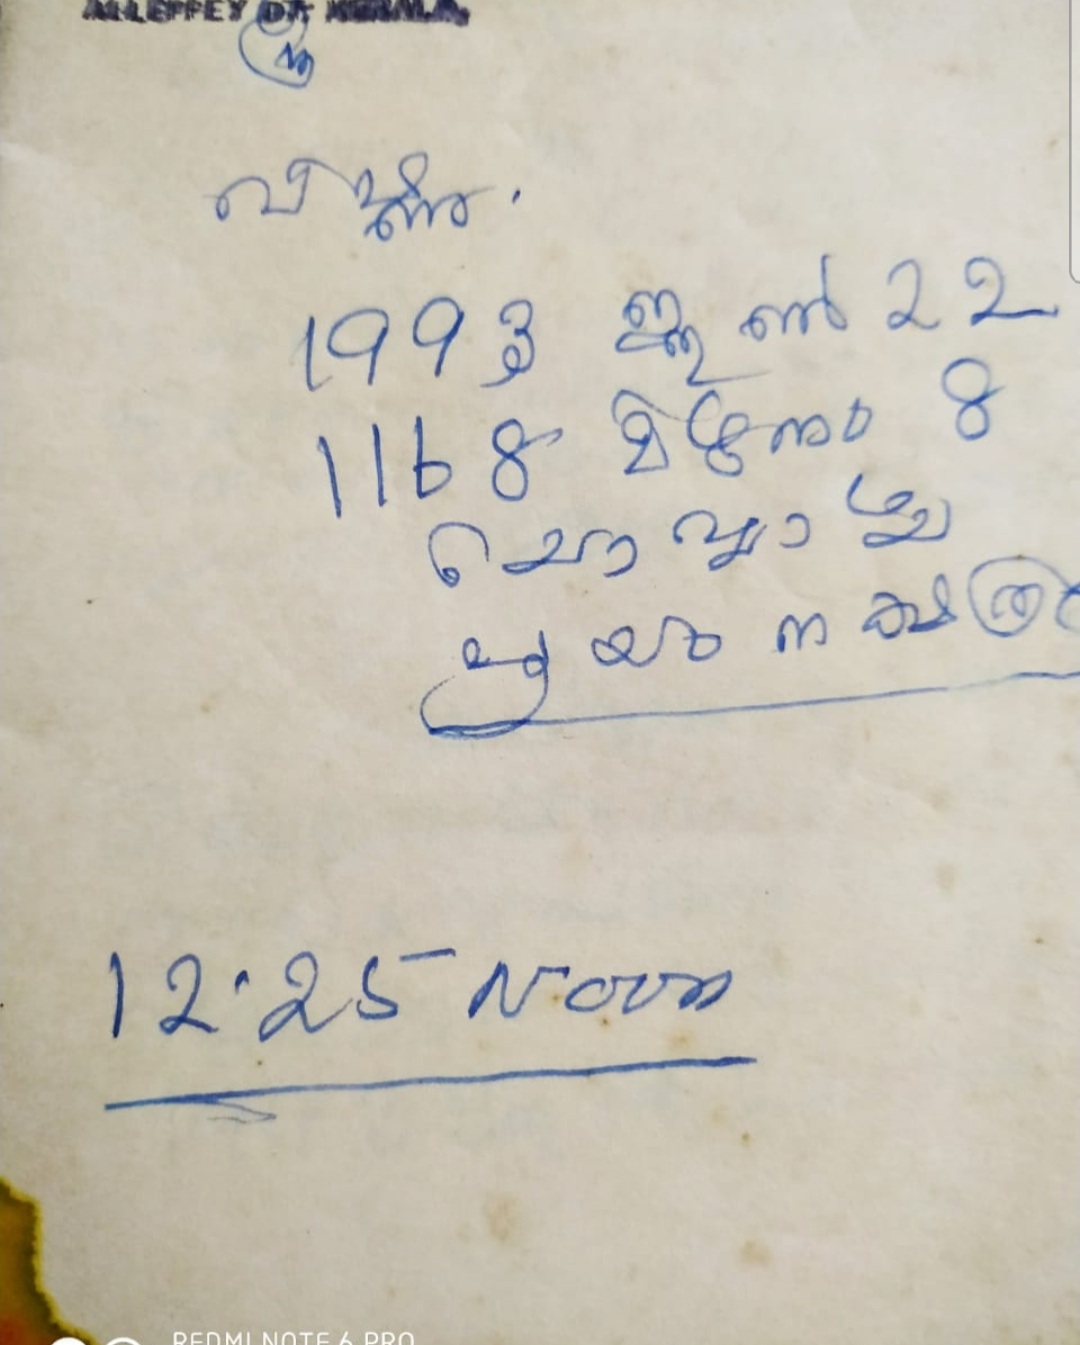 ALLEPPEY DT. KERALA.
വിഷ്ണു.
1993 ജൂൺ 22
1168 മിഥുനം 8
ചൊവ്വാഴ്ച
പൂയം നക്ഷത്രം
12.25 Noon
REDMI NOTE 6 PRO